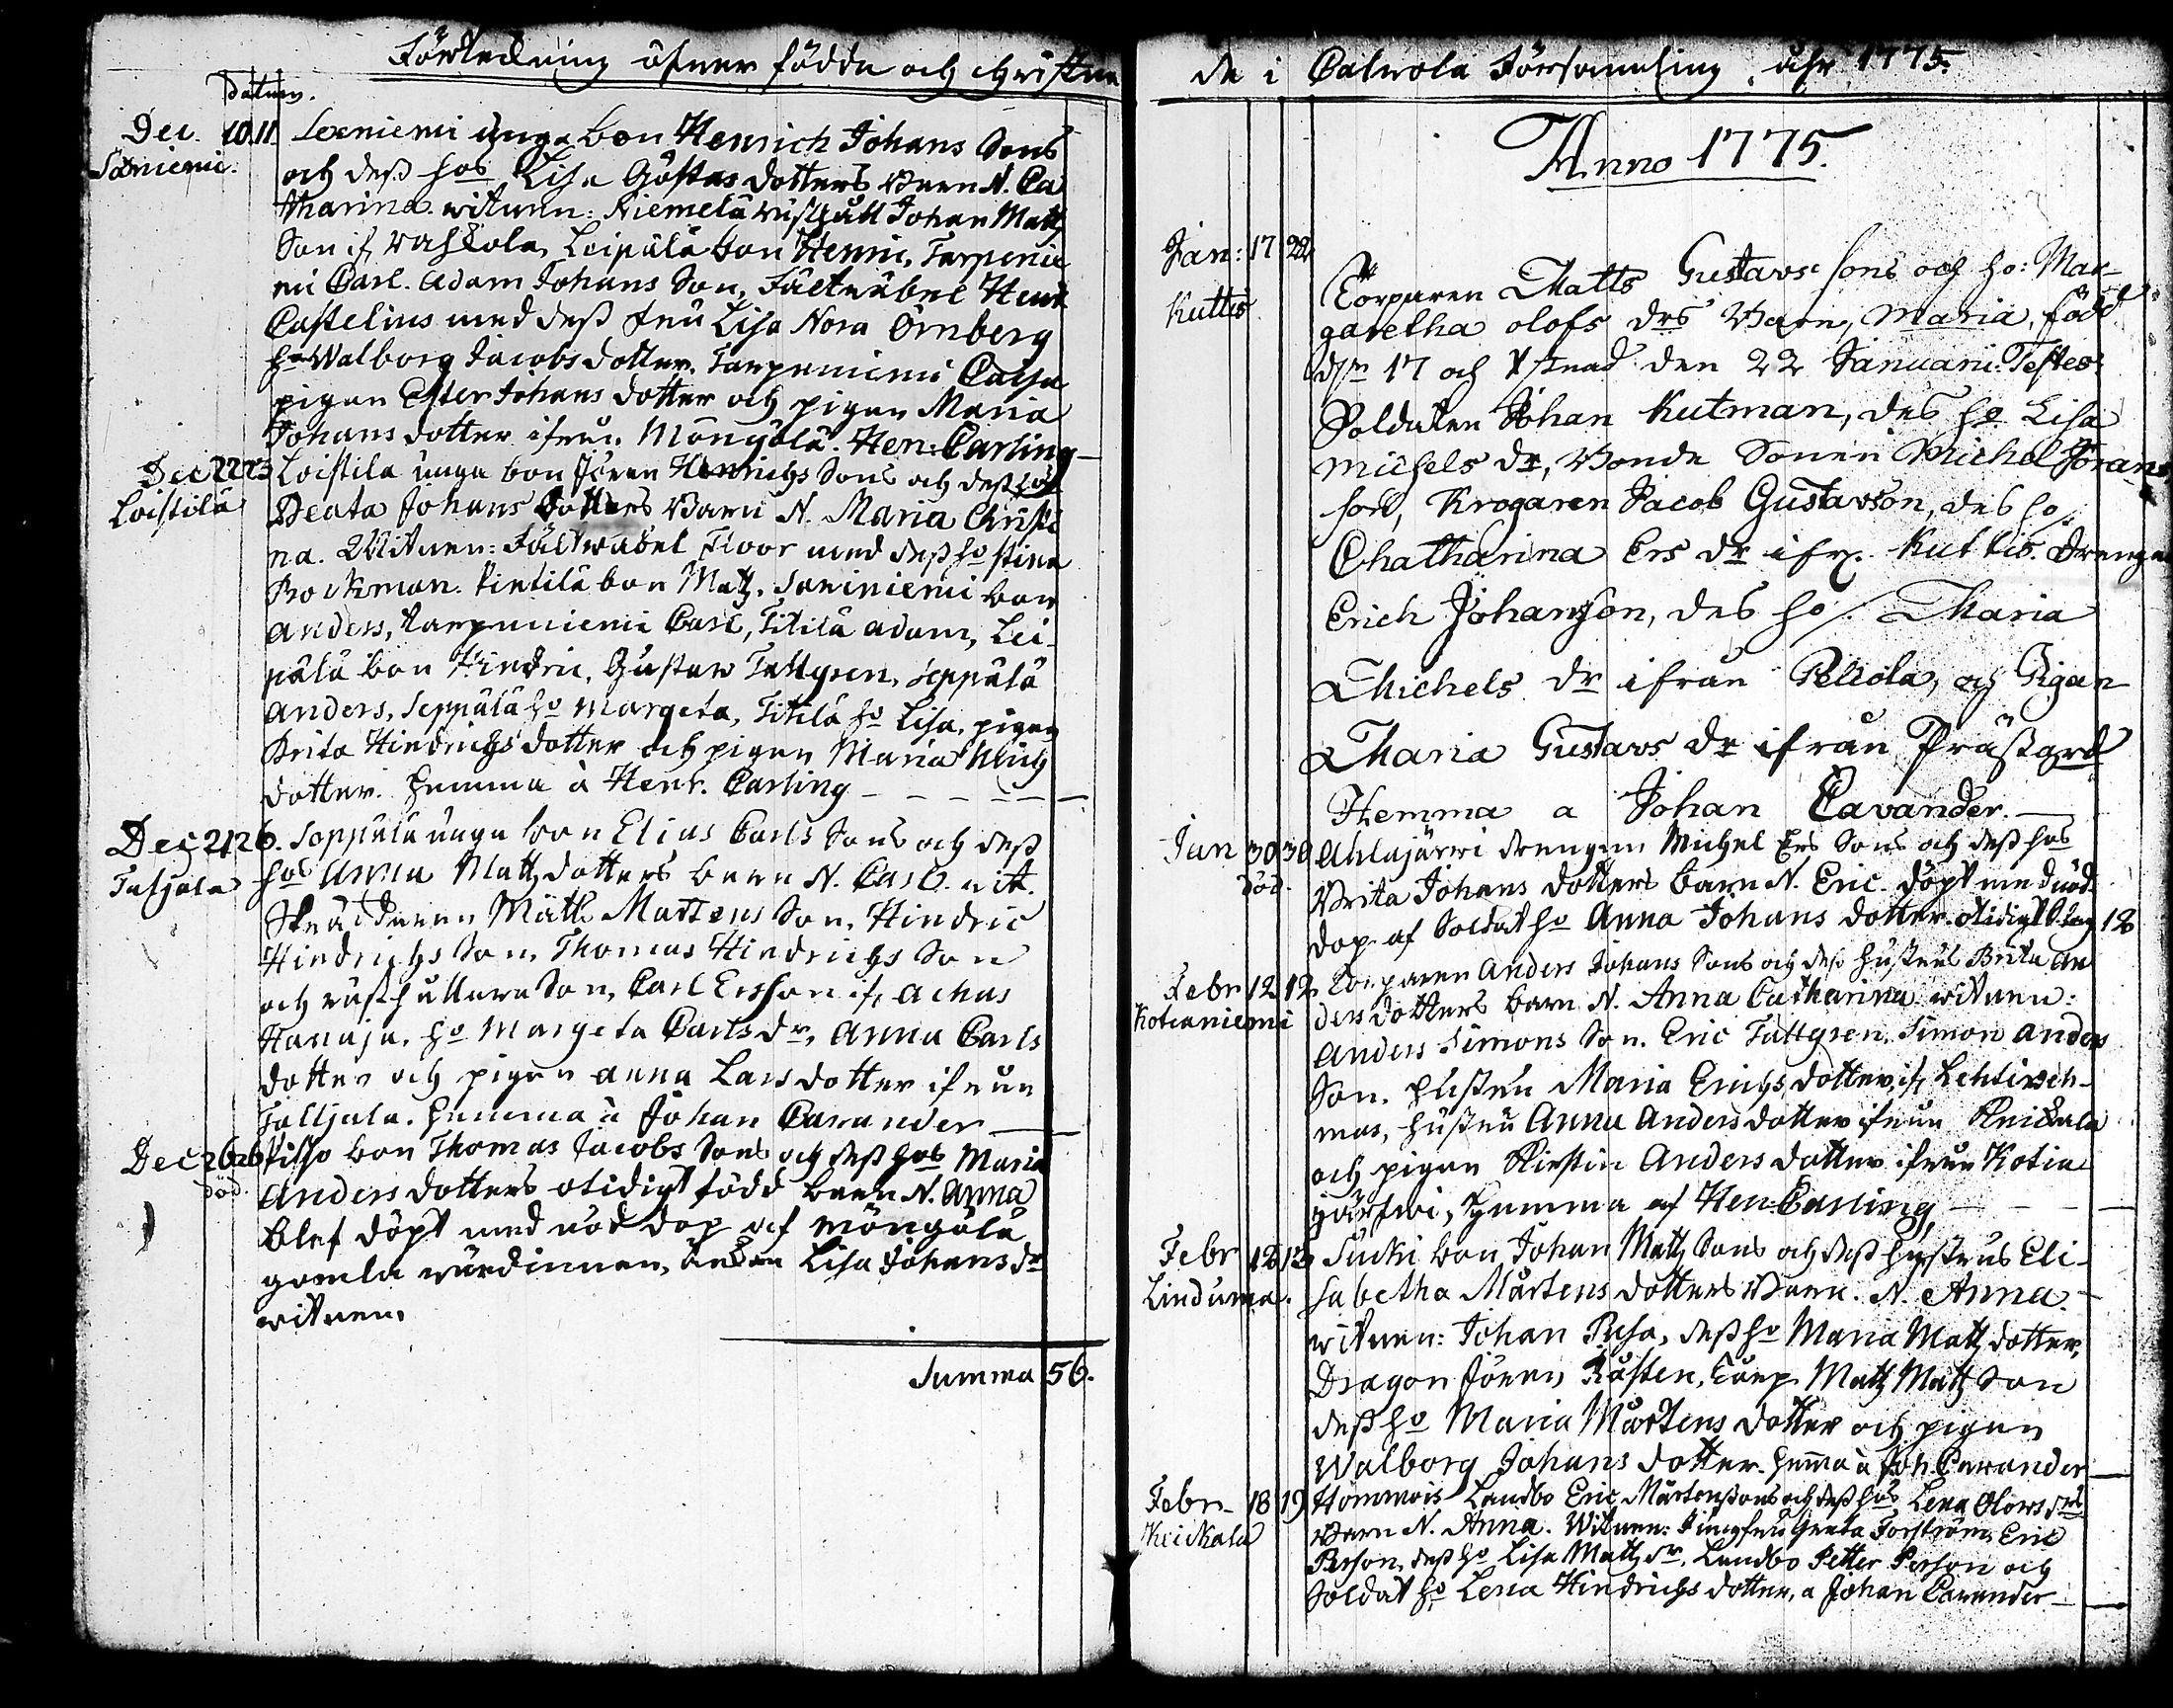 Förteckning öfver födde och christna
Datum.
Dec. 10. 11. Sexniemi unga bon Henrich Johans Sons
Saxniemi. och dess hos Lisa Göstas dotters Barn N. Ca
tharina. witnen: Niemelä Johan Matz
Son if Wahlola, Leipälä bon Henric, Tarpenie
mi Carl. Adam Johans Son, Fältwäbel Henr
Castelius med dess fru Lisa Nora Örnberg
ho Walborg Jacobs dotter. Tarpeniemi Caisa
pigan Ester Johans dotter och pigan Maria
Johans dotter ifrån Möngölä. Hen: Carling
Dec 22 23 Loistila unga bon Jöran Henrichs Sons och dess hos
Loistila Beata Johans Dotters Barn N. Maria Christi
na. Witnen: Fältwäbel Floor med dess ho Stina
Bockman. Pintilä bon Matz. Saxiniemi bon
Anders, Tarpeniemi Carl, Titilä Adam, Lei-
pälä bon Hindric, Gustaw Tallgren, Seppälä
Anders, Seppälä ho Margeta, Titilä ho Lisa, pigan
Brita Hindrichs dotter och pigan Maria
dotter. hemma a Henr. Carling
Dec 21 26. Seppälä unga bon Elias Carls Sons och dess
Taljala hos Anna Matz dotters barn N. Carl. witt.
Skräddaren Math Martens Son, Hindric
Hindrichs Son, Thomas Hindrichs Son
och Son, Carl Ersson if, Achas
Hanaja. ho Margeta Carls dr, Anna Carls
dotter och pigan Anna Lars dotter ifrån
Talljala. hemma a Johan Cavander
Dec 26 26 Pitso bon Thomas Jacobs Sons och dess hos Maria
död. Anders dotters otidigt född barn N. Anna
blef döpt med nöd dop af Möngölä
gamla wärdinnan, änkan Lisa Johans dr
witnen.
Summa 56.
de i Calvola Församling, åhr 1775.
Anno 1775.
Jan: 17 22 Torparen Matts Gustavs sons och ho: Mar-
Kuttis garetha olofs drs Barn, Maria, född
den 17 och Xstnad den 22 Januarii. Testes:
Soldaten Johan Kutman, des ho Lisa
Michels dr, Bonde Sonen Michel Jörans
son, Krogaren Jacob Gustavson, des ho
Chatharina Ers dr ifr. Kuttis. Drengen
Erich Johanson, des ho/. Maria
Michels dr ifrån Pelliola, och Pigan
Maria Gustavs dr ifrån Prästgrd
Hemma a Johan Cavander.
Jan 30 30 Ahlajärvi drengen Michel Ers Sons och dess hos
död. Brita Johans dotters barn N. Eric. döpt med nöd
dop af Soldat ho Anna Johans dotter. otidigt
Febr 12 12 Torparen Anders Johans Sons och dess hustrus Brita An
Kotianiemi ders dotters barn N. Anna Catharina witnen:
Anders Simons Son. Eric Tallgren. Simon Anders
Son. Hustru Maria Erichs dotter, if, Lehtiseh-
mas, hustru Anna Anders dotter ifrån Keikala
och pigan Kirstin Anders dotter ifrån Kotia
järfwi, hemma af Hen: Carling,
Febr 12 13 Sucki bon Johan Matz Sons och dess hustrus Eli-
Linduma. sabetha Mårtens dotters Barn. N. Anna.
witnen: Johan Pusa, dess ho Maria Matz dotter,
Dragon Jöran Kasten, Torp. Matz Matz Son
dess ho Maria Mårtens dotter och pigan
Walborg Johans dotter. hemma a Joh Cavander
Febr 18 19 Hommois Landbo Eric Mårtenssons och dess hos Lena Olovs drs
Keikala Barn N. Anna. Witnen: Jungfru Greta Forström. Eric
Persson, dess ho Lisa Matz dr. Landbo Petter Persson och
Soldat ho Lena Hindrichs dotter, a Johan Cavander